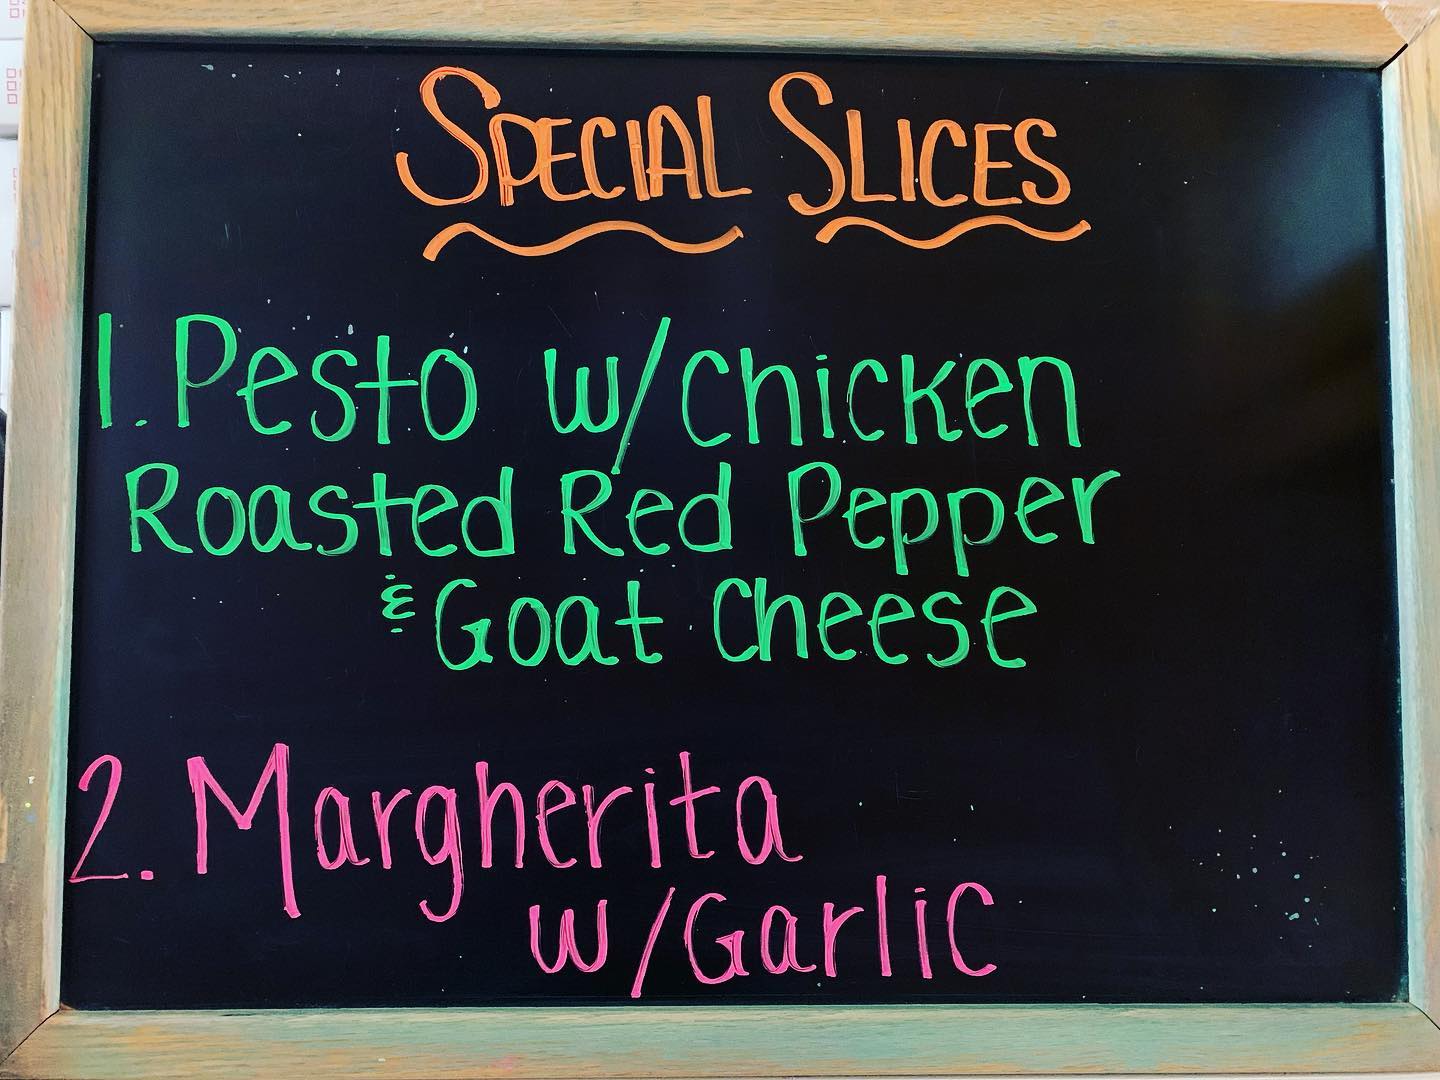 SPECIAL SLICES
1. Pesto w/Chicken
Roasted Red Pepper
& Goat Cheese
2. Margherita
w/Garlic